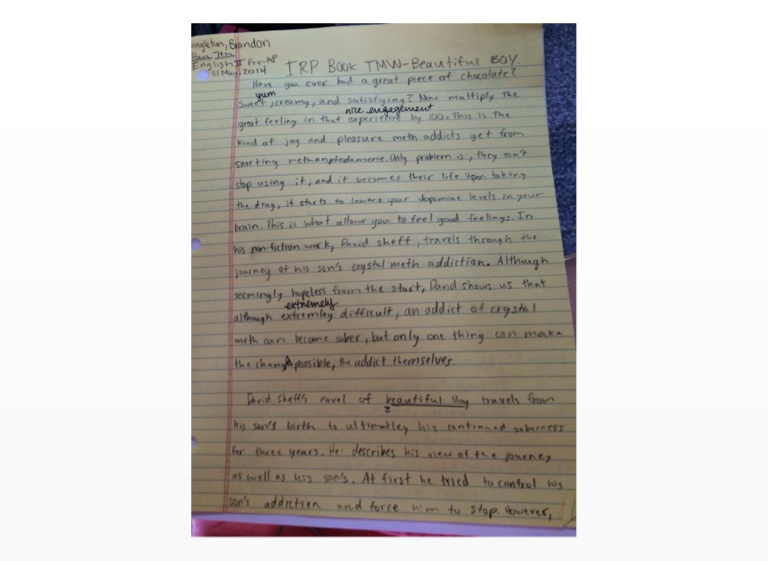 Brandon
English II Pre-AP
01 May, 2014
IRP Book TMW-Beautiful Boy
Have you ever had a great piece of chocolate?
yum
Sweet, creamy, and satisfying? Now multiply the
nice engagement
great feeling in that experience by 100. This is the
kind of joy and pleasure meth addicts get from
snorting methamphedamene. Only problem is, they can't
stop using it, and it becomes their life. Upon taking
the drug, it starts to lowere your dopamine levels in your
brain. This is what allows you to feel good feelings. In
his non-fiction work, David Sheff, travels through the
journey of his son's crystal meth addiction. Although
seemingly hopeless from the start, David shows us that
extremely
although extremley difficult, an addict of crystal
meth can become sober, but only one thing can make
the change possible, the addict themselves.
David Sheff's novel of beautiful Boy travels from
his son's birth to ultimatley his continued soberness
for three years. He describes his view of the journey
as well as his son's. At first he tried to control his
son's addiction and force him to stop. However,